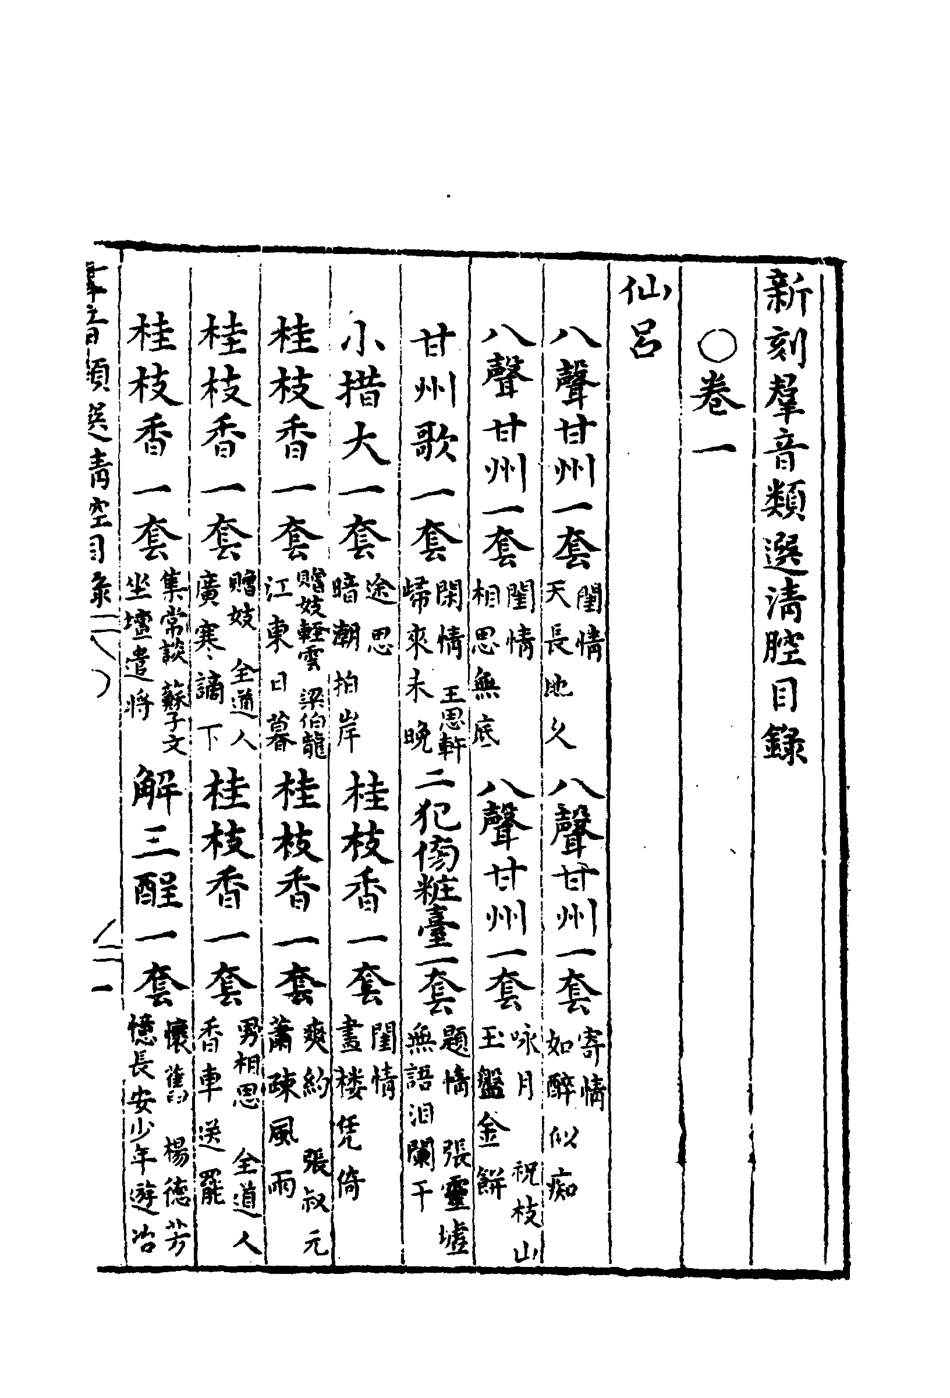 新刻羣音類選清腔目錄
○卷一
仙呂
八聲甘州一套 閨情 天長地久 八聲甘州一套 寄情 如醉似痴
八聲甘州一套 閨情 相思無底 八聲甘州一套 咏月 祝枝山 玉盤金餅
甘州歌一套 閑情 王思軒 歸來未晚 二犯傍粧臺一套 題情 張靈墟 無語泪闌干
小措大一套 途思 暗潮拍岸 桂枝香一套 閨情 畫楼凭倚
桂枝香一套 贈妓輕雲 梁伯龍 江東日暮 桂枝香一套 爽約 張叔元 蕭疎風雨
桂枝香一套 贈妓 全道人 廣寒謫下 桂枝香一套 男相思 全道人 香車送罷
桂枝香一套 集常談 蘇子文 坐壇遣将 解三酲一套 懷舊 楊德芳 憶長安少年遊冶
羣音類選清空目錄 一